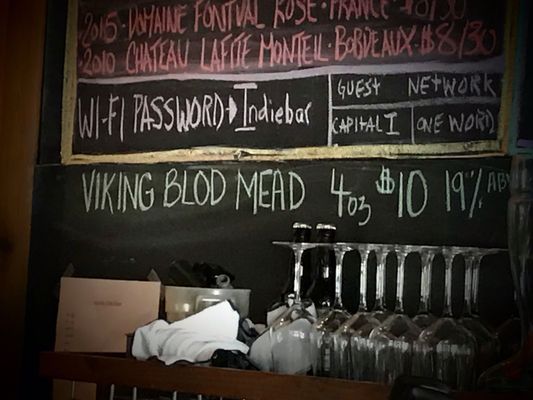 2015 · DOMAINE FONTVAL ROSÉ · FRANCE $8/30
2010 CHATEAU LAFITE MONTEIL · BORDEAUX · $8/30
WI-FI PASSWORD → Indiebar
GUEST NETWORK
CAPITAL I ONE WORD
VIKING BLOD MEAD 4oz $10 19% ABV